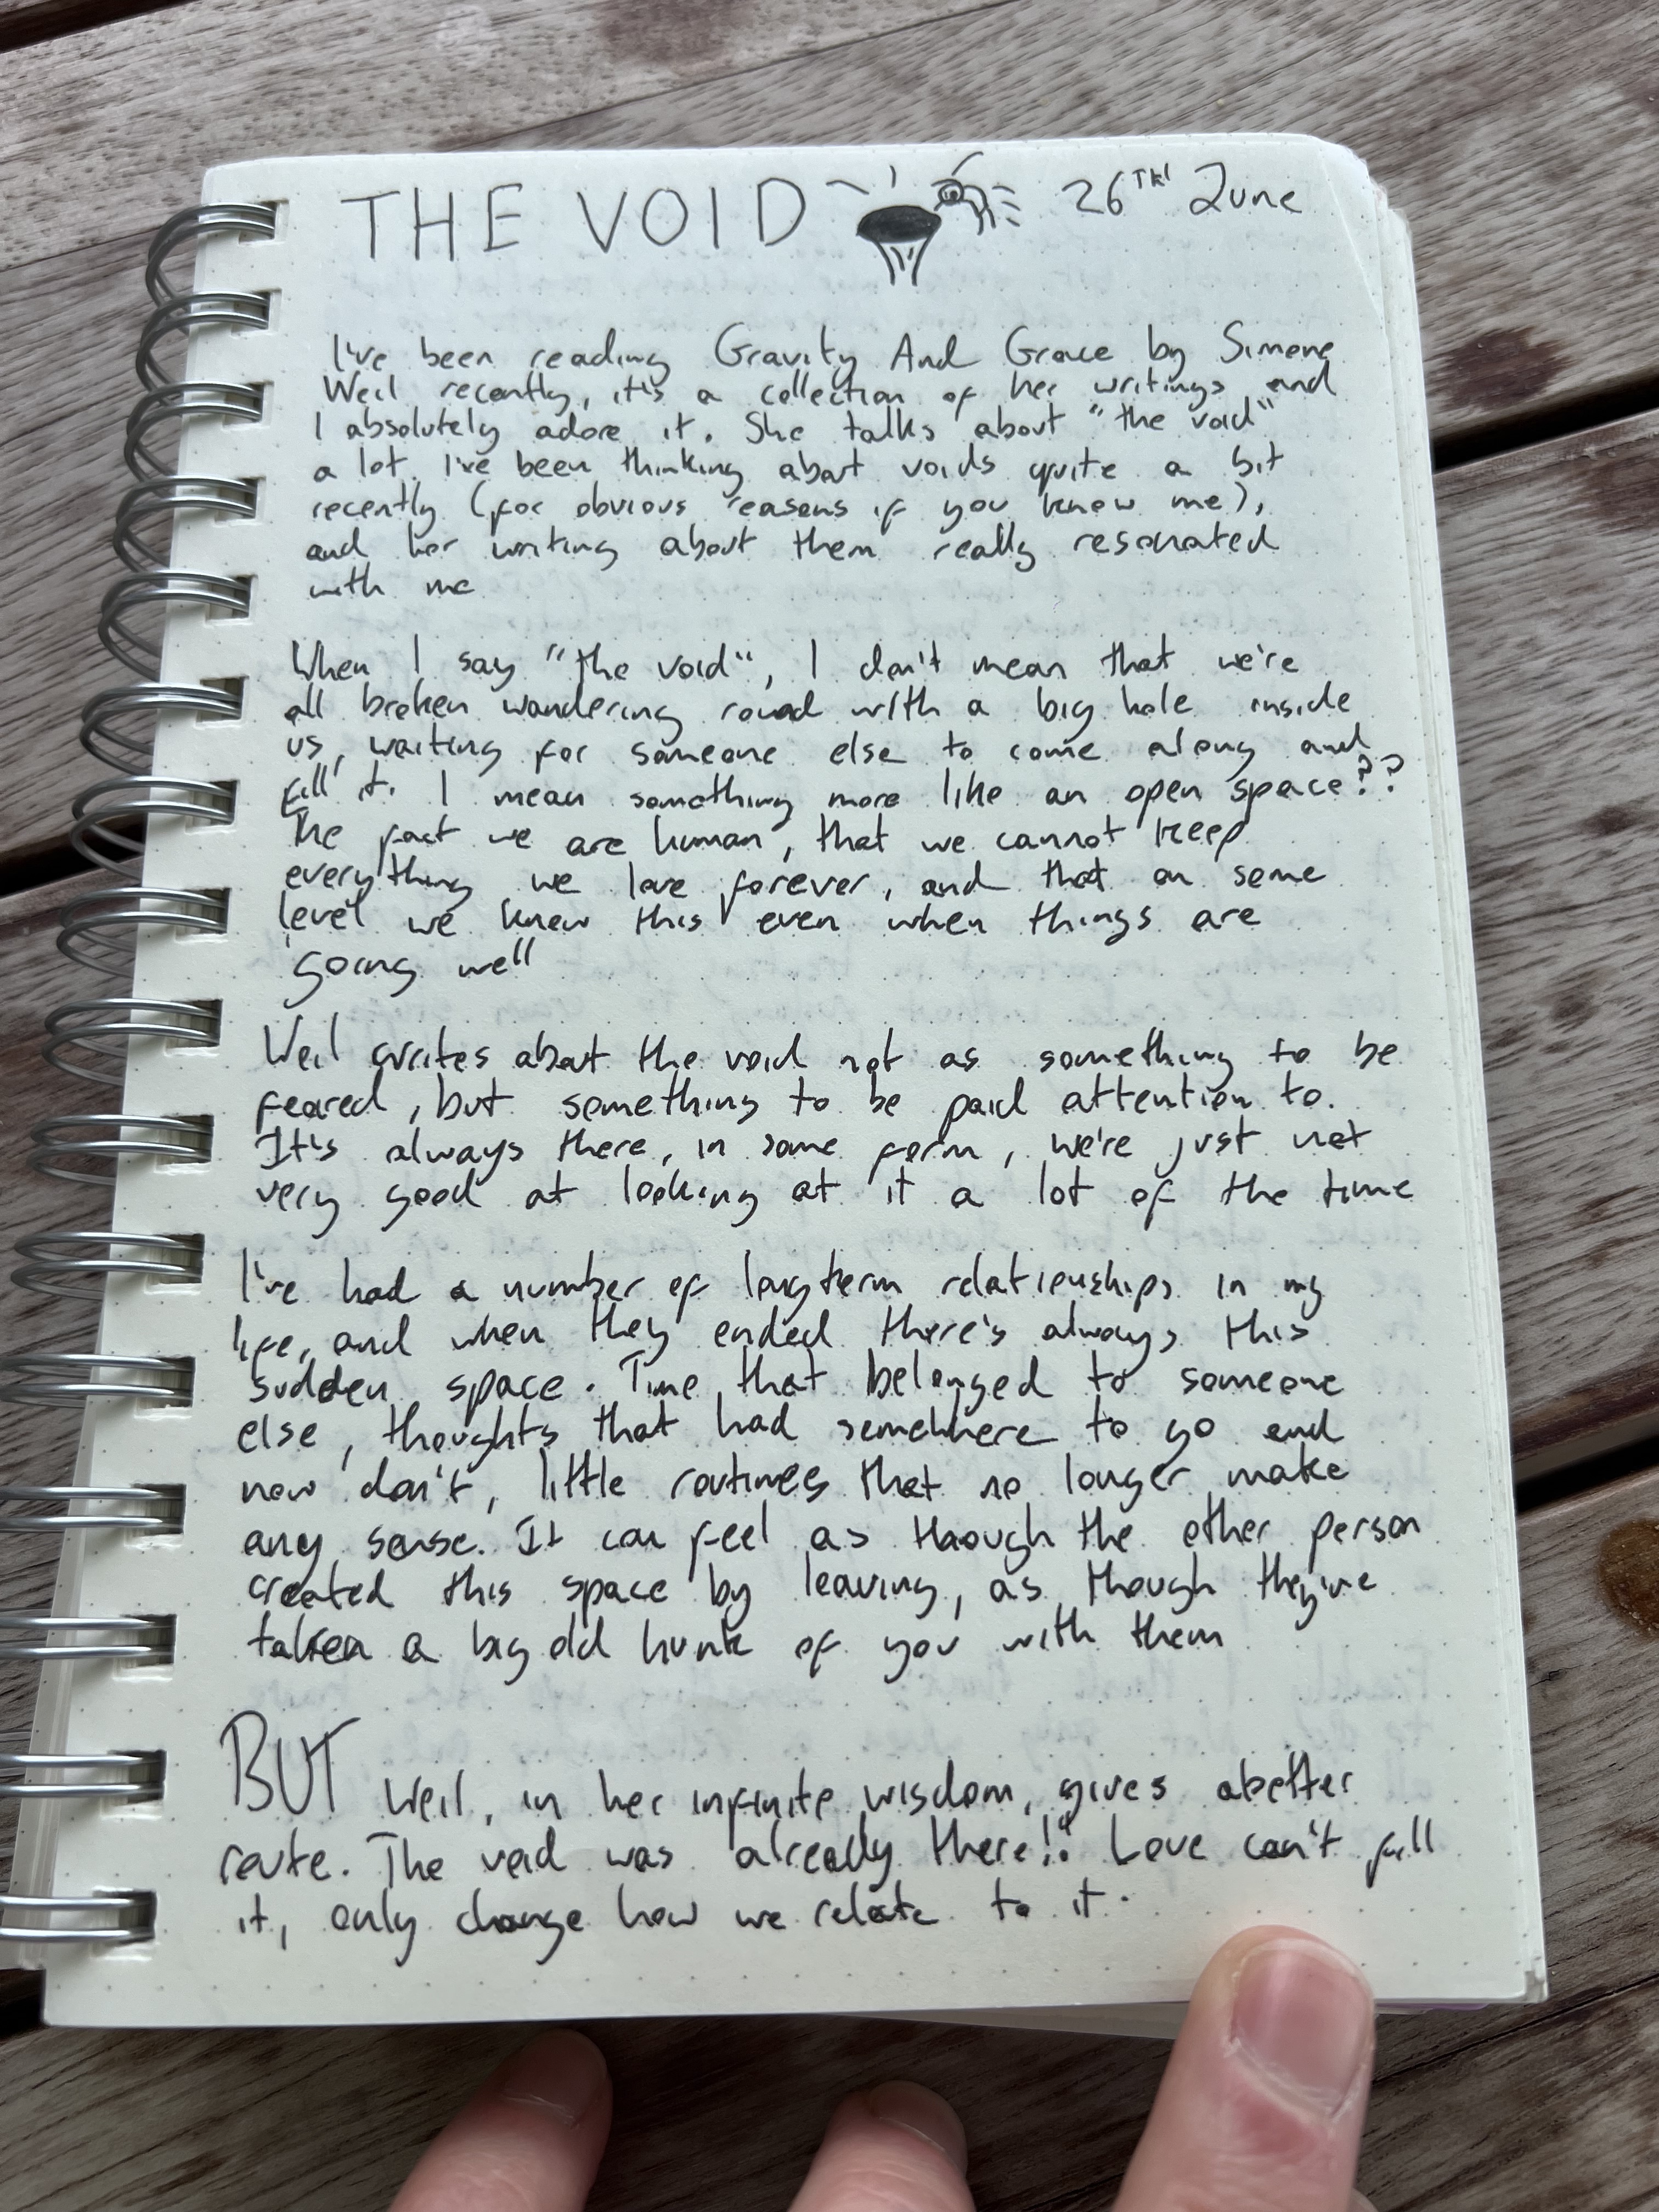 THE VOID 26TH June
I've been reading Gravity And Grace by Simone
Weil recently, it's a collection of her writings and
I absolutely adore it. She talks about "the void"
a lot. I've been thinking about voids quite a bit
recently (for obvious reasons if you know me),
and her writing about them really resonated
with me
When I say "the void", I don't mean that we're
all broken wandering round with a big hole inside
us, waiting for someone else to come along and
fill it. I mean something more like an open space??
The fact we are human, that we cannot keep
everything we love forever, and that on some
level we know this even when things are
going well
Weil writes about the void not as something to be
feared, but something to be paid attention to.
It's always there, in some form, we're just not
very good at looking at it a lot of the time
I've had a number of longterm relationships in my
life, and when they ended there's always this
sudden space. Time that belonged to someone
else, thoughts that had somewhere to go and
now don't, little routines that no longer make
any sense. It can feel as though the other person
created this space by leaving, as though they've
taken a big old hunk of you with them
BUT Weil, in her infinite wisdom, gives a better
route. The void was already there!! Love can't fill
it, only change how we relate to it.